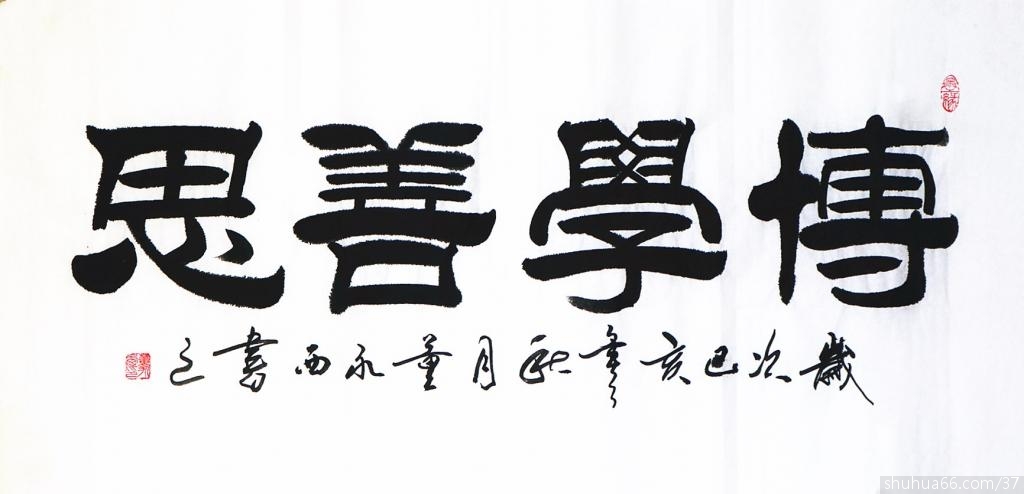 博學善思
歲次己亥年秋月董永西書之
shuhua66.com/37